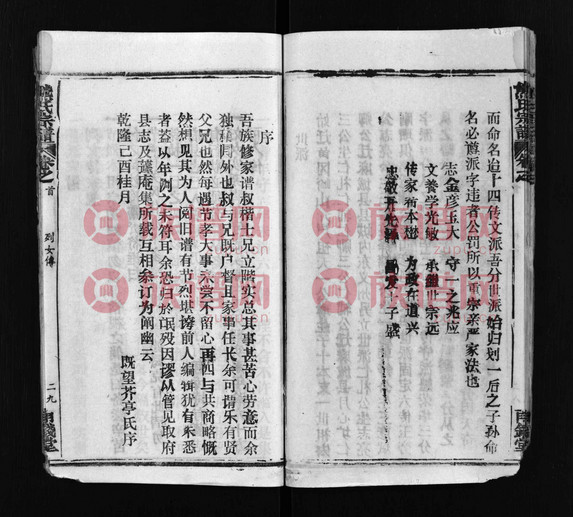 氏宗谱 卷之
而命名迨十四传文派吾分世派始归划一后之子孙命
名必遵派字违者公罚所以重宗亲严家法也
志金彦玉大 守一之兆应
文养学光敏 承继正宗远
传家裕本懋 为政在道兴
忠敬
子盛
序
吾族修家谱叔楷士兄立畴实总其事甚苦心劳意而余
独袖归外也叔与兄既户督且家事任长余可谓乐有贤
父兄也然每遇节孝大事未尝不留心再四与共商略慨
然想见其为人阅旧谱有节烈堪誇前人编辑犹有未悉
者盖以年沟之未符耳余恐归於氓殁因谬从管见取府
县志及 庵集所载互相参订为阐幽云
乾隆己酉桂月
既望芥亭氏序
氏宗谱 卷之
首
列女傳
二九
族谱网